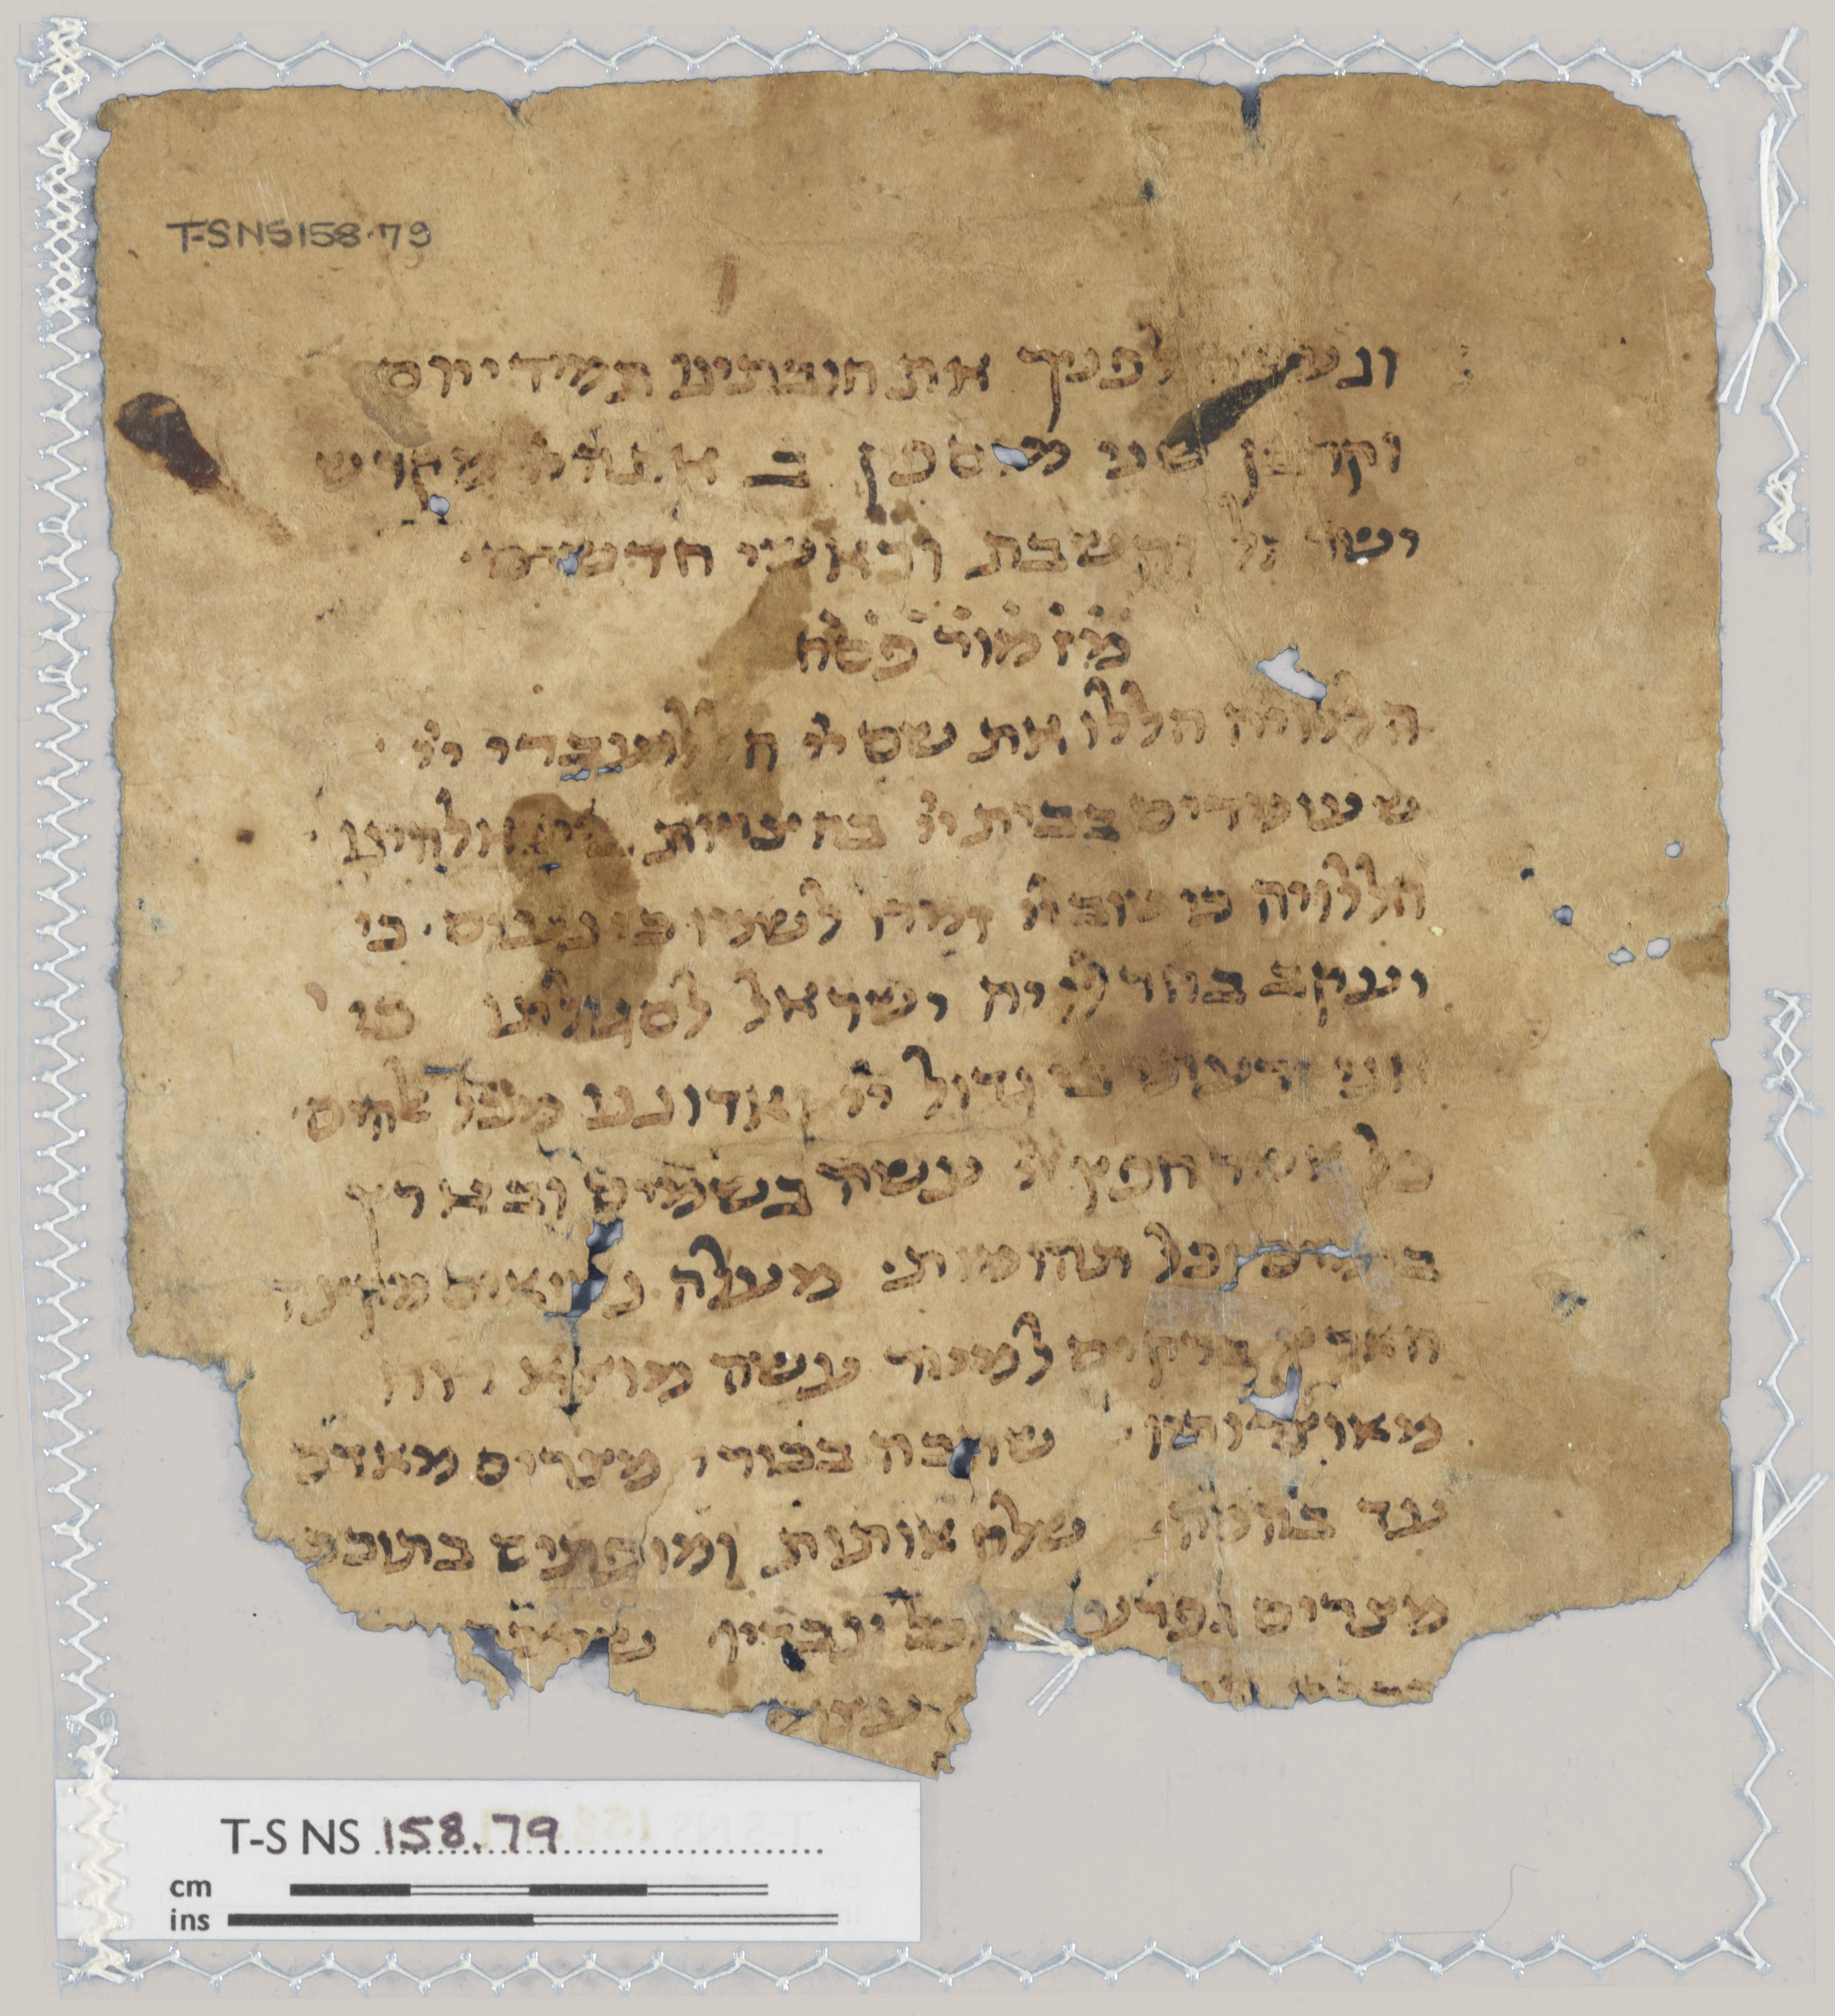 T-S NS 158·79
לפניך את חובתינו תמיד יום
וקרבן
והשבת וראשי חדשים
מזמור פסח
הללויה הללו את שם יי הללו עבדי יי
שעומדים בבית יי בחצרות בית אלהינו
הללויה כי טוב יי זמרו לשמו כי נעים כי
יעקב בחר לו יה ישראל לסגולתו כי
אני ידעתי כי גדול יי ואדונינו מכל אלהים
כל אשר חפץ יי עשה בשמים ובארץ
בימים וכל תהומות מעלה נשיאים מקצה
הארץ ברקים למטר עשה מוצא רוח
מאוצרותיו שהכה בכורי מצרים מאדם
עד בהמה שלח אותות ומופתים בתוככי
מצרים בפרעה ובכל עבדיו
T-S NS 158.79
cm
ins